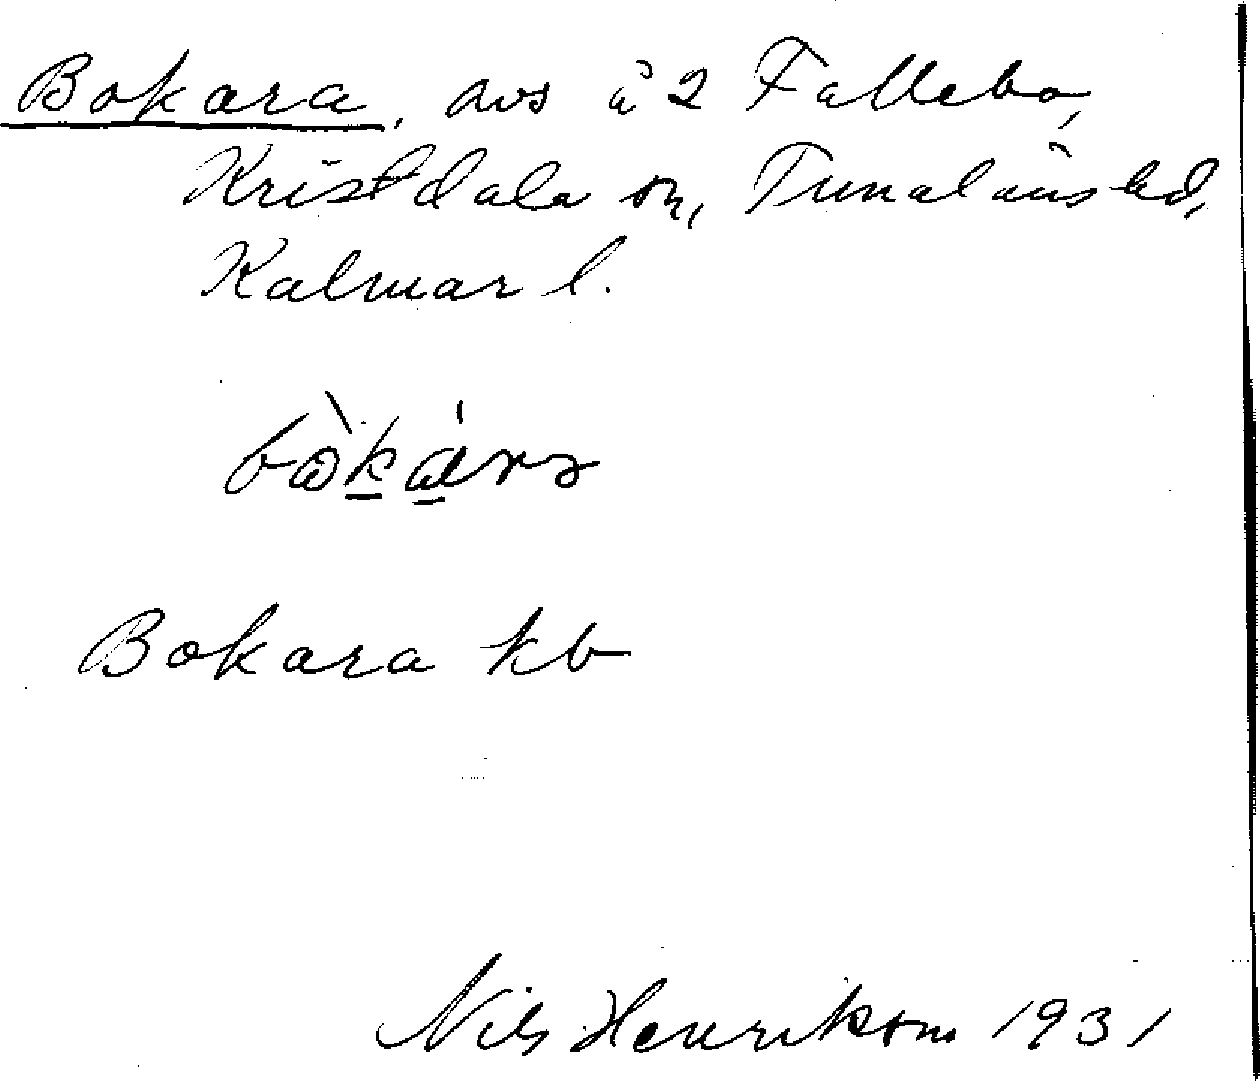 Bokara, avs å 2 Fallebo,
Kristdala sn, Tunaläns hd,
Kalmar l.
Bokara kb
Nils Henrikson 1931